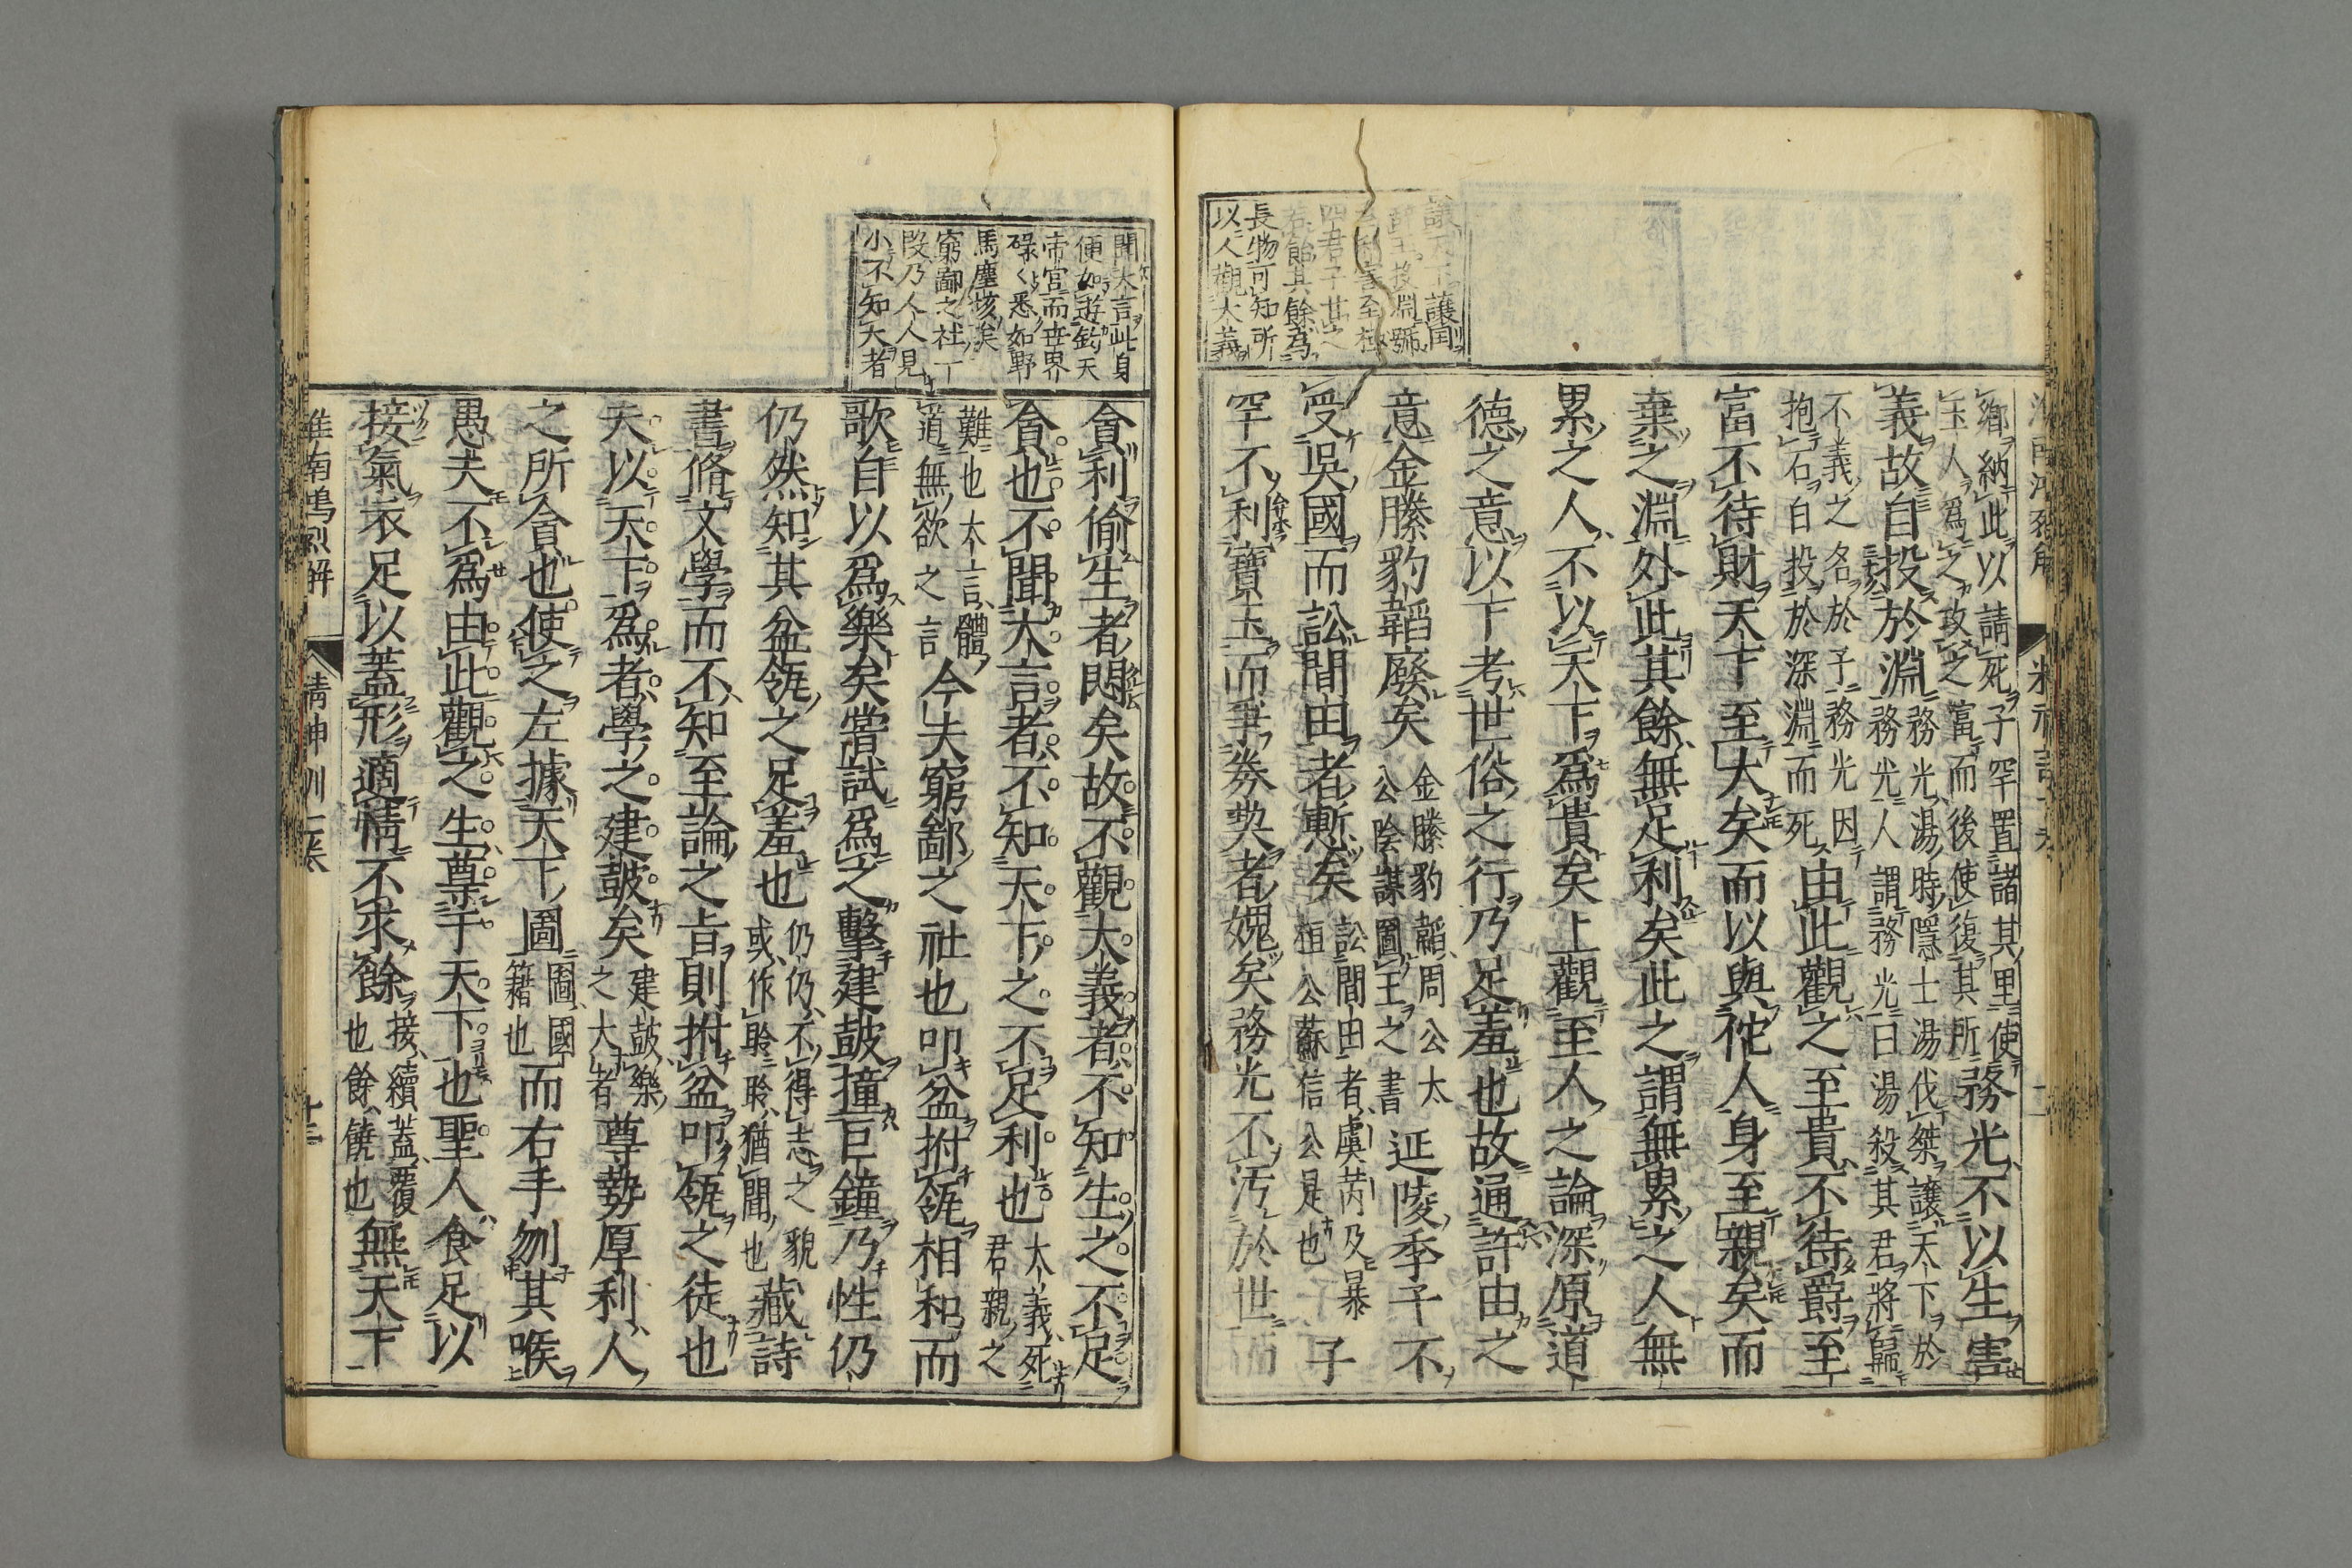 讓天下讓国
辭玉投淵號
利害至極
四君子廿之
若飴其餘為
長物可知所
以人觀大義
鄉納此以請死子罕置諸其里使
玉人為之攻之富而後使復其所
務光不以生害
義故自投於淵
務光湯時隱士湯伐桀讓天下於
務光人謂務光曰湯殺其君將歸
不義之名於子務光因
抱石自投於深淵而死
由此觀之至貴不待爵至
富不待財天下至大矣而以與佗人身至親矣而
棄之淵外此其餘無足利矣此之謂無累之人無
累之人不以天下為貴矣上觀至人之論深原道
德之意以下考世俗之行乃足羞也故通許由之
意金縢豹韜廢矣
金縢豹韜周公太
公陰謀圖王之書
延陵季子不
受吳國而訟間由者慙矣
訟間由者虞芮及暴
桓公蘇信公是也
子
罕不利寶玉而爭券契者媿矣務光不污於世而
聞大言此身
便如遊鈞天
帝宮而世界
碌々悉如野
馬塵垓矣
窮鄙之社一
段乃人人見
小不知大者
貪利偷生者悶矣故不觀大義者不知生之不足
貪也不聞大言者不知天下之不足利也
大義死
君親之
難也大言體
道無欲之言
今夫窮鄙之社也叩盆拊瓴相和而
歌自以為樂矣嘗試為之擊建鼓撞巨鐘乃性仍
仍然知其盆瓴之足羞也
仍仍不得志之貌
或作聆聆猶聞也
藏詩
書脩文學而不知至論之旨則拊盆叩瓴之徒也
夫以天下為者學之建鼓矣
建鼓樂
之大者
尊勢厚利人
之所貪也使之左據天下圖
圖國
籍也
而右手刎其喉
愚夫不為由此觀之生尊于天下也聖人食足以
接氣衣足以蓋形適情不求餘
接續蓋覆
也餘饒也
無天下
淮南鴻烈解
精神訓七卷
十三